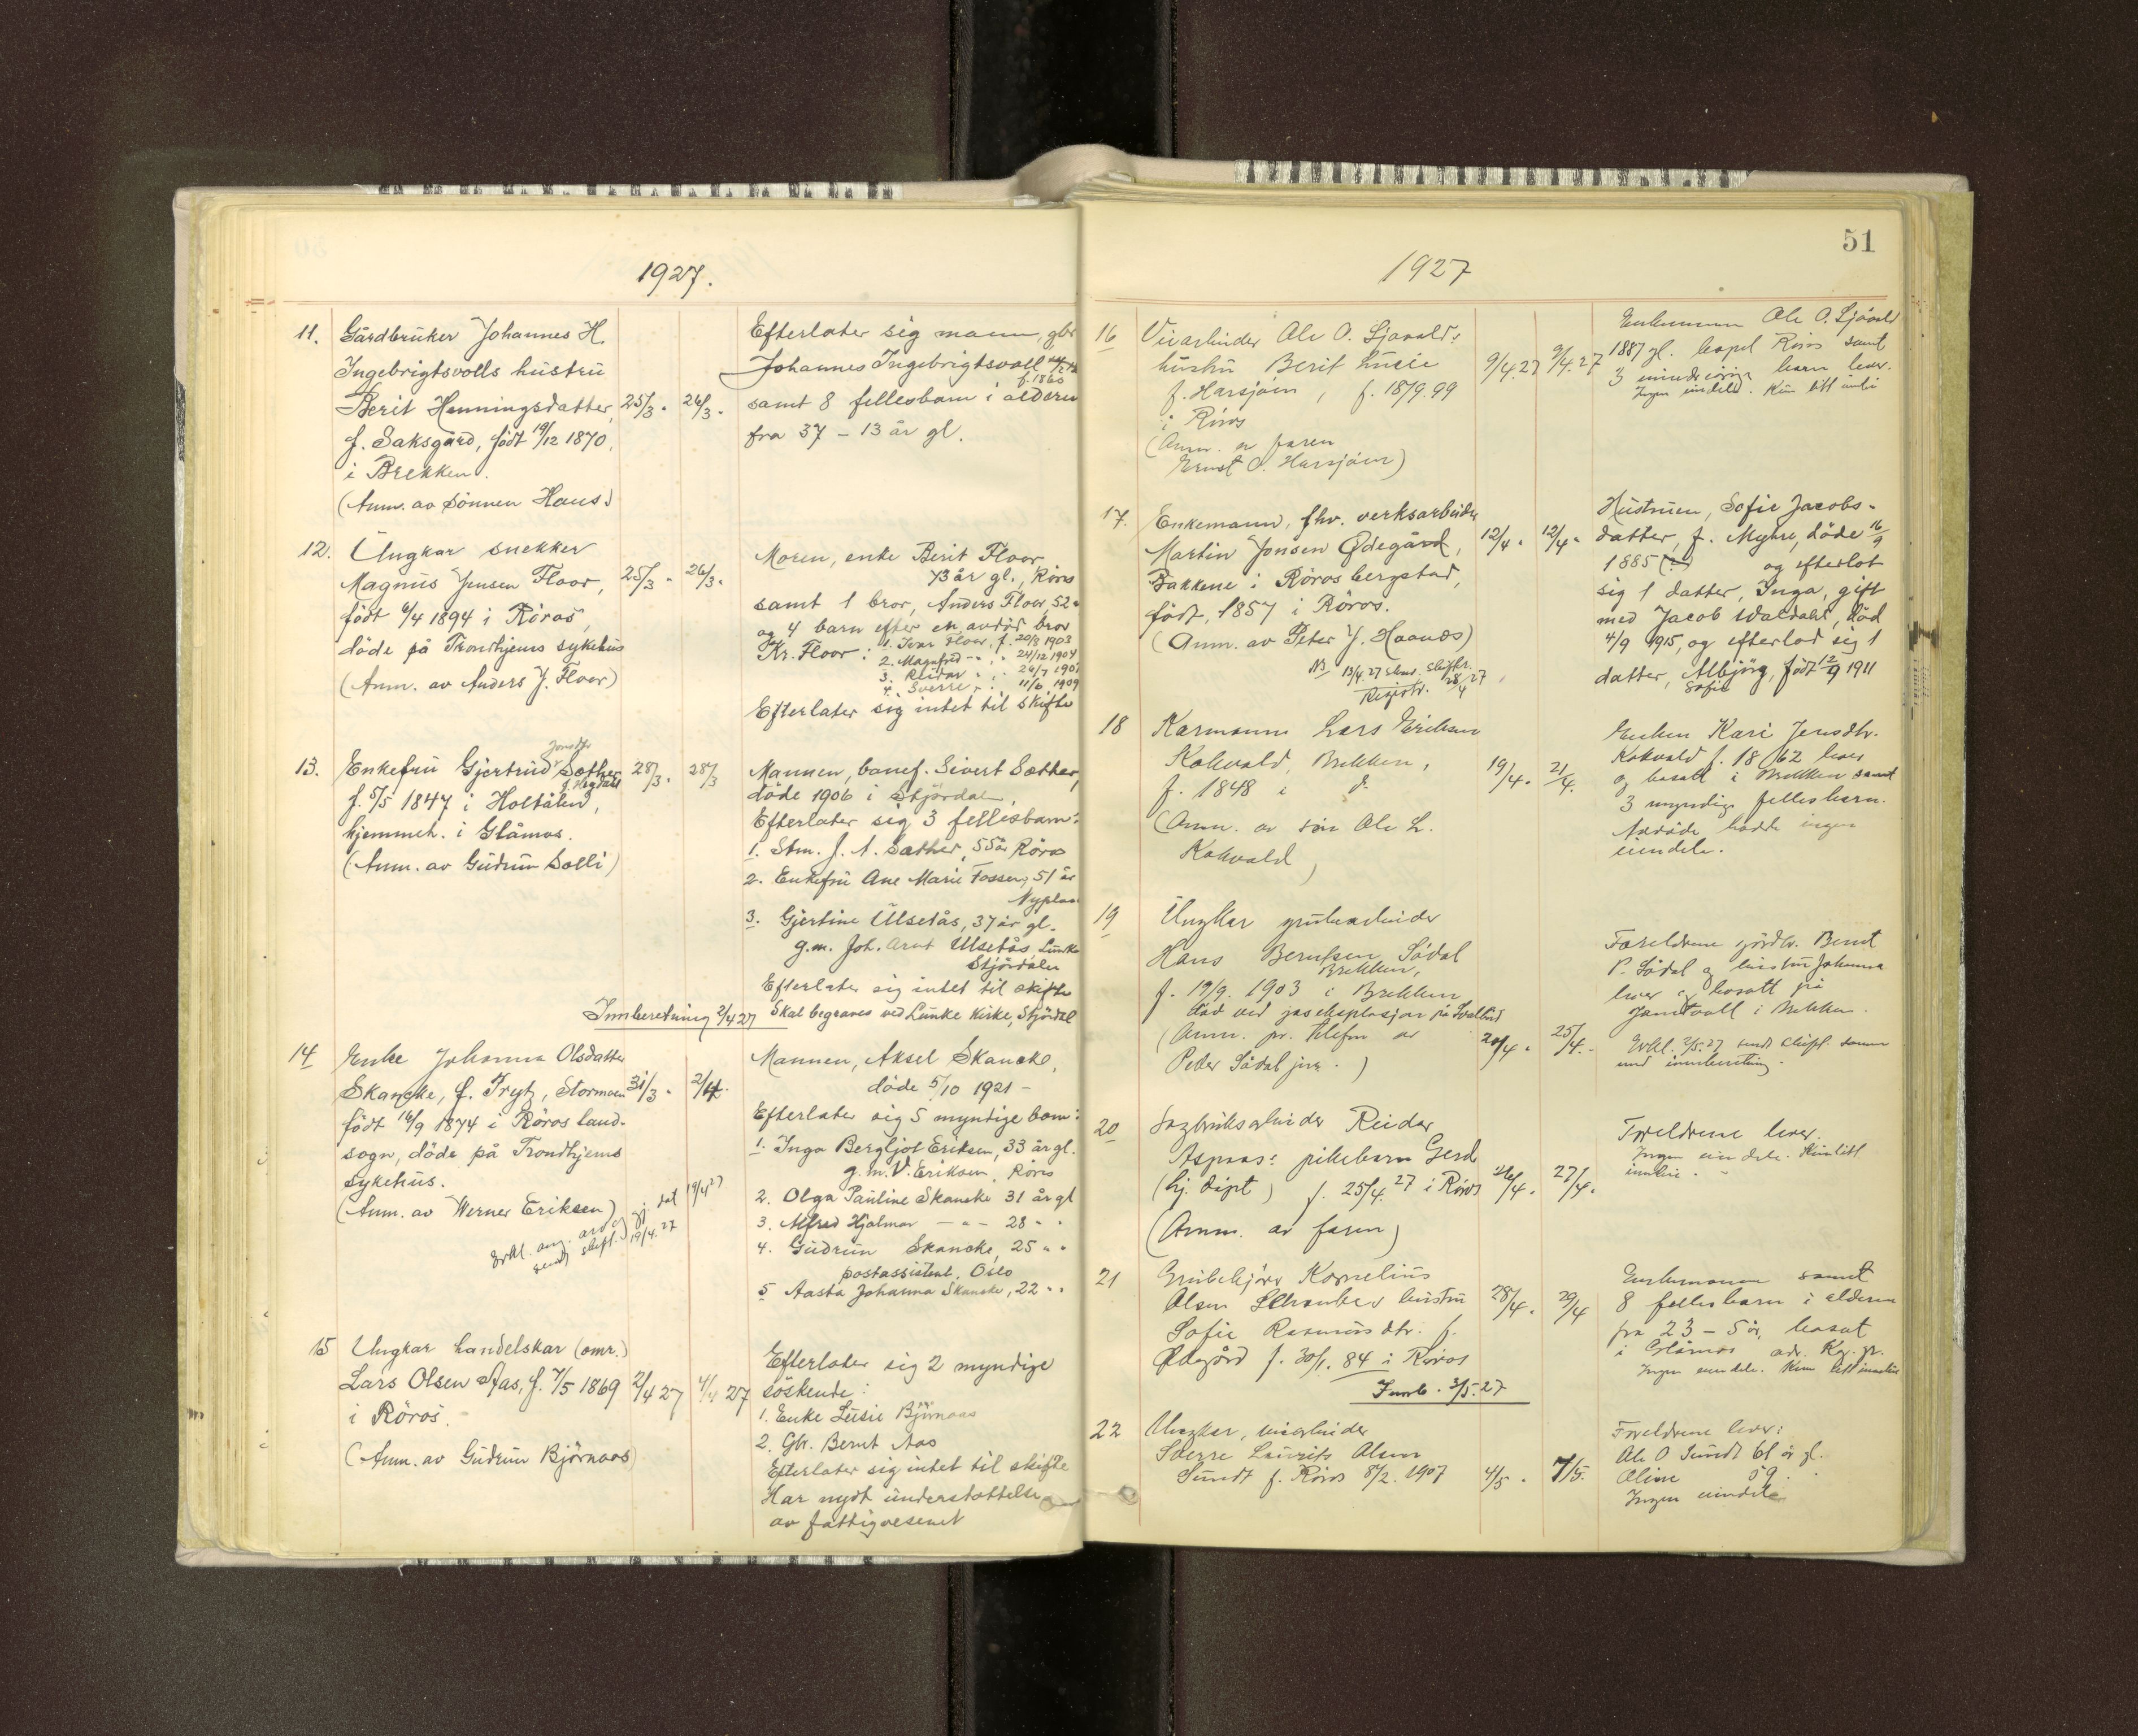 1927.
11. Gårdbruker Johannes H.
Ingebrigtsvolls hustru
Berit Henningsdatter, 25/3 " 26/3 "
f. Saksgård, født 19/12 1870,
i Brekken.
(Anm. av sönnen Hans)
Efterlater sig mann, gbr
Johannes Ingebrigtsvoll
f. 1860
samt 8 fellesbarn i alderen
fra 37 - 13 år gl.
12. Ungkar snekker
Magnus Jensen Floor, 25/3 " 26/3 "
født 6/4 1894 i Röros,
döde på Trondhjems sykehus
(Anm. av Anders J. Floor)
Moren, enke Berit Floor
73 år gl., Röros
samt 1 bror, Anders Floor, 52 "
og 4 barn efter en avdöd bror
Kr. Floor: 1. Ivar Floor, f. 20/3 1903
2. Magnfred - " - 24/12 1904
3. Reidar " 24/7 1907
4. Sverre " 11/6 1909
Efterlater sig intet til skifte
13. Enkefru Gjertrud Jonsdtr Sæther 28/3 " 28/3
f. 5/5 1847 i Holtålen,
hjemmeh. i Glåmos.
(Anm. av Gudrun Solli)
Mannen, banef. Sivert Sæther,
döde 1906 i Stjördalen,
Efterlater sig 3 fellesbarn:
1. Stm. J. A. Sæther, 55 år Röros
2. Enkefru Ane Marie Fossen, 51 år
Nyplas
3. Gjertine Ulsetås, 37 år gl.
g.m. Joh. Arnt Ulsetås, Lånke
Stjördalen
Efterlater sig intet til skifte
Innberetning 2/4 27 Skal begraves ved Lånke kirke, Stjördal
14 Enke Johanna Olsdatter
Skancke, f. Trytz, Stormoen 31/3 " 2/4 "
født 16/9 1874 i Röros land-
sogn, döde på Trondhjems
sykehus.
(Anm. av Werner Eriksen)
Erkl. ang. arv gj. dat 19/4 27
sendt skift. 19/4.27
Mannen, Aksel Skancke,
döde 5/10 1921 -
Efterlater sig 5 myndige barn:
1. Inga Bergljot Eriksen, 33 år gl.
g.m. V. Eriksen, Röros
2. Olga Pauline Skancke 31 år gl
3. Alfred Hjalmar - " - 28 " "
4. Gudrun Skancke, 25 " "
postassistent, Oslo
5 Aasta Johanna Skancke, 22 " "
15 Ungkar handelskar (omr.)
Lars Olsen Aas, f. 7/5 1869 2/4 27 4/4 27
i Röros.
(Anm. av Gudrun Björnaas)
Efterlater sig 2 myndige
söskende:
1. Enke Lusie Björnaas
2. Gbr. Bernt Aas
Efterlater sig intet til skifte
Har nydt understøttelse
av fattigvesenet
51
1927
16 Veiarbeider Ole O. Sjøvolds
hustru Berit Lusie 9/4.27 9/4.27
f. Harsjøen, f. 18/9.99
i Röros
(Anm. av faren
Ernst O. Harsjøen)
Enkemann Ole O. Sjøvold
1887 gl. bopel Röros samt
3 mindreårige barn lever.
Ingen eiendele. Kun litt innbo
17. Enkemann, fhv. verksarbeider
Martin Jonsen Ødegård, 12/4 " 12/4 "
Bakkene i Röros bergstad,
født, 1857 i Röros.
(Anm. av Peter J. Haanæs)
NB 13/4.27 skifter.
Registr. 28/4 27
Hustruen, Sofie Jacobs-
datter, f. Myhre, døde 16/9
1885 (?) og efterlot
sig 1 datter, Inga, gift
med Jacob Waldahl, död
4/9 1915, og efterlod sig 1
datter, Albjörg, født 12/9 1911
Sofie
18 Kårmann Lars Eriksen
Kokvold, Brekken, 19/4 " 21/4.
f. 1848 i d.
(Anm. av sön Ole L.
Kokvold)
Enken Kari Jensdtr.
Kokvold f. 1862 lever
og bosatt i Brekken samt
3 myndige fellesbarn.
Avdöde hadde ingen
eiendele.
19 Ungkar grubearbeider
Hans Berntsen Södal
Brekken,
f. 19/9. 1903 i Brekken
död ved gaseksplosjon på Svalbard
(Anm. pr. telefon av 20/4 " 25/4. "
Peder Södal jnr.)
Foreldrene gårdbr. Bernt
P. Södal og hustru Johanna
lever og bosatt på
Jamtvoll i Brekken.
Erkl. 2/5.27 sendt skift. samme
med innberetning.
20 Sagbruksarbeider Reidar
Aspaas: pikebarn Gerd
(hj. döpt) f. 25/4.27 i Röros 26/4. 27/4.
(Anm. av faren)
Foreldrene lever.
Ingen eiendele. Kun litt
innbo.
21 Grubekjörer Kornelius
Olsen hustru 28/4. 29/4
Sofie Rasmusdtr. f.
Ødegård f. 30/1. 84 i Röros
Innb. 3/5.27
Enkemannen samt
8 fellesbarn i alderen
fra 23 - 5 år, bosat
i Glåmos
Ingen eiendele. Kun litt innbo
22 Ungkar, veiarbeider
Sverre Laurits Olsen
Sundt f. Röros 8/2. 1907 4/5 " 7/5.
Foreldrene lever:
Ole O Sundt 61 år gl.
Oline 59 "
Ingen eiendele